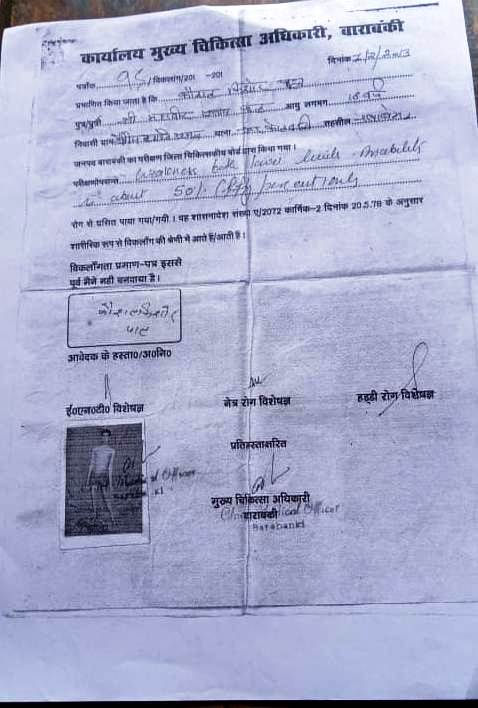 कार्यालय मुख्य चिकित्सा अधिकारी, बाराबंकी
पत्रांक 95 /विकलांग/201 -201 दिनांक 7/2/2013
प्रमाणित किया जाता है कि कौशल किशोर पाल
पुत्र/पुत्री श्री आयु लगभग 18 वर्ष
निवासी ग्राम थाना तहसील
जनपद बाराबंकी का परीक्षण जिला चिकित्साकीय बोर्ड द्वारा किया गया।
परीक्षणोपरान्त Weakness both lower limbs. Disability
is about 50% (fifty) percent only
रोग से ग्रसित पाया गया/गयी। यह शासनादेश संख्या ए/2072 कार्मिक-2 दिनांक 20.5.78 के अनुसार
शारीरिक रूप से विकलाँग की श्रेणी में आते हैं/आती है।
विकलाँगता प्रमाण-पत्र इससे
पूर्व मैंने नही बनवाया है।
कौशल किशोर
पाल
आवेदक के हस्ता०/अ०नि०
ई०एन०टी० विशेषज्ञ नेत्र रोग विशेषज्ञ हड्डी रोग विशेषज्ञ
प्रतिहस्ताक्षरित
Chief Medical Officer
Barabanki
मुख्य चिकित्सा अधिकारी
बाराबंकी
Chief Medical Officer
Barabanki